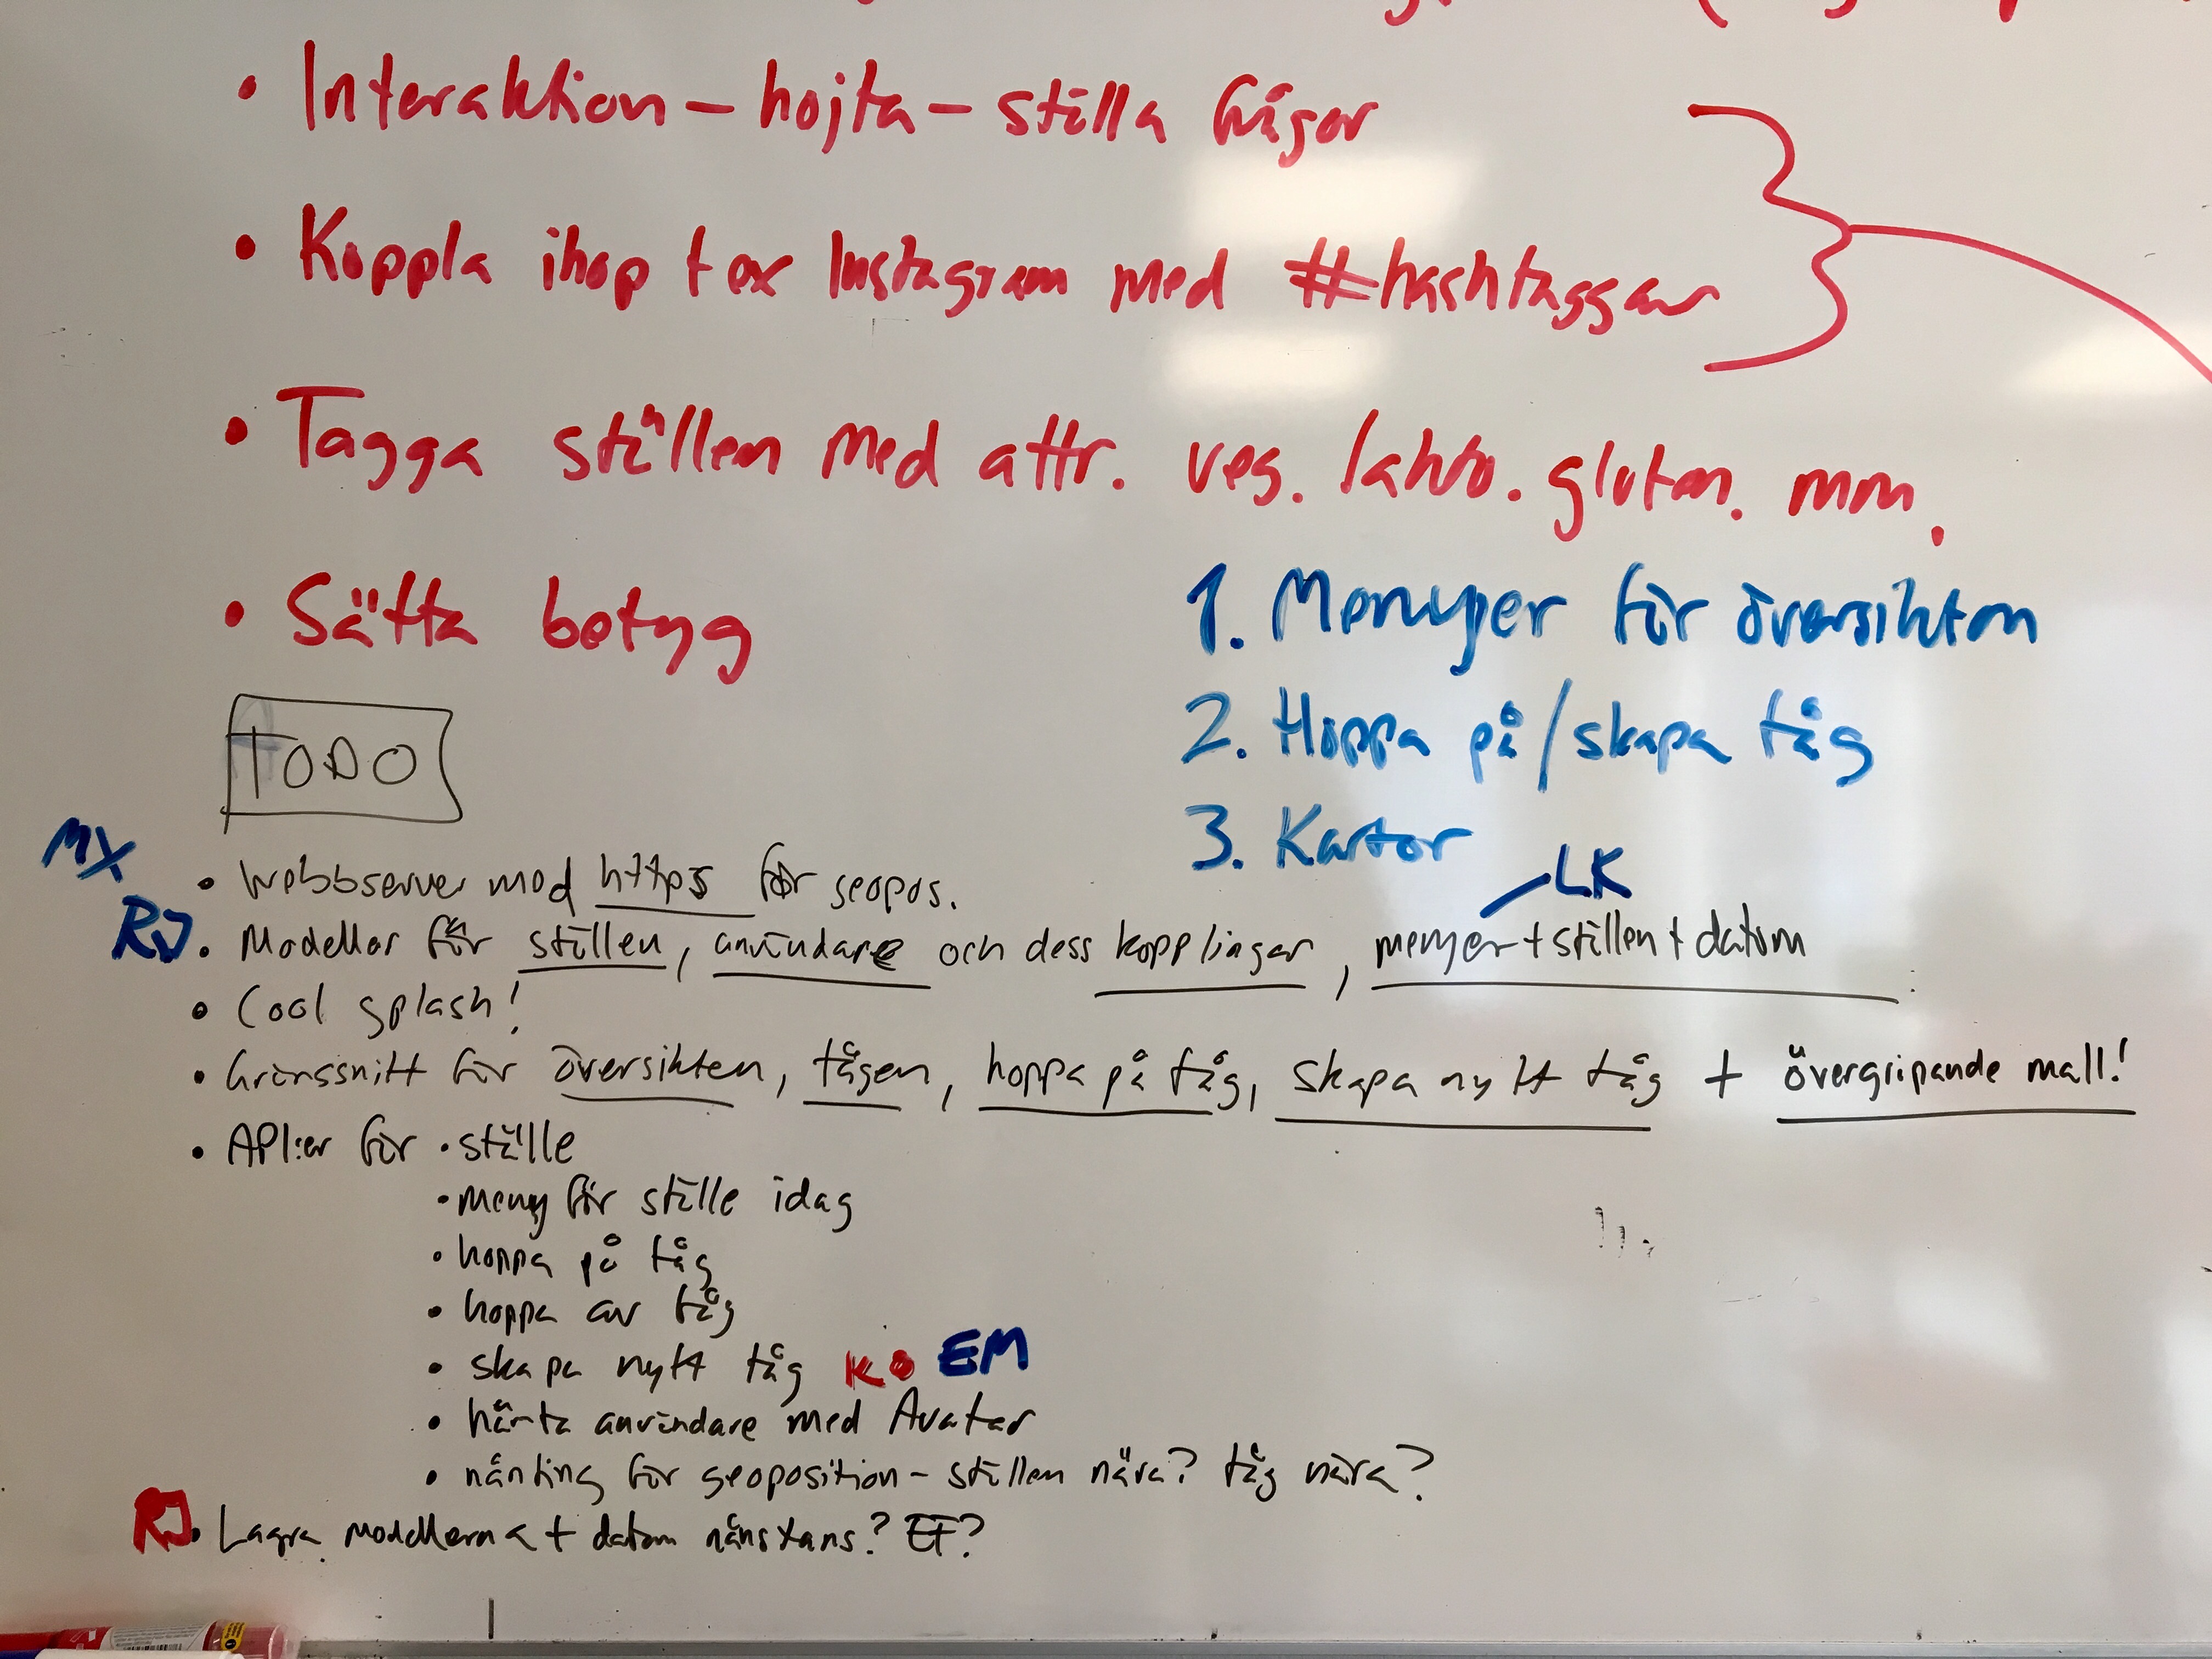 • Interaktion – hojta – ställa frågor
• Koppla ihop t ex Instagram med #hashtaggar
• Tagga ställen med attr. veg. lakto. gluten. mm.
• Sätta betyg
1. Menyer för översikten
2. Hoppa på/skapa tåg
3. Kartor
TODO
MX • Webbserver med https för geopos.
LK
RJ • Modeller för ställen, användare och dess kopplingar, menyer + ställen + datum
• Cool splash!
• Gränssnitt för översikten, tågen, hoppa på tåg, skapa nytt tåg + övergripande mall!
• API:er för • ställe
• meny för ställe idag
• hoppa på tåg
• hoppa av tåg
• skapa nytt tåg EM
• hämta användare med Avatar
• nånting för geoposition – ställen nära? tåg nära?
RJ • Lagra modellerna + datum nånstans? EF?